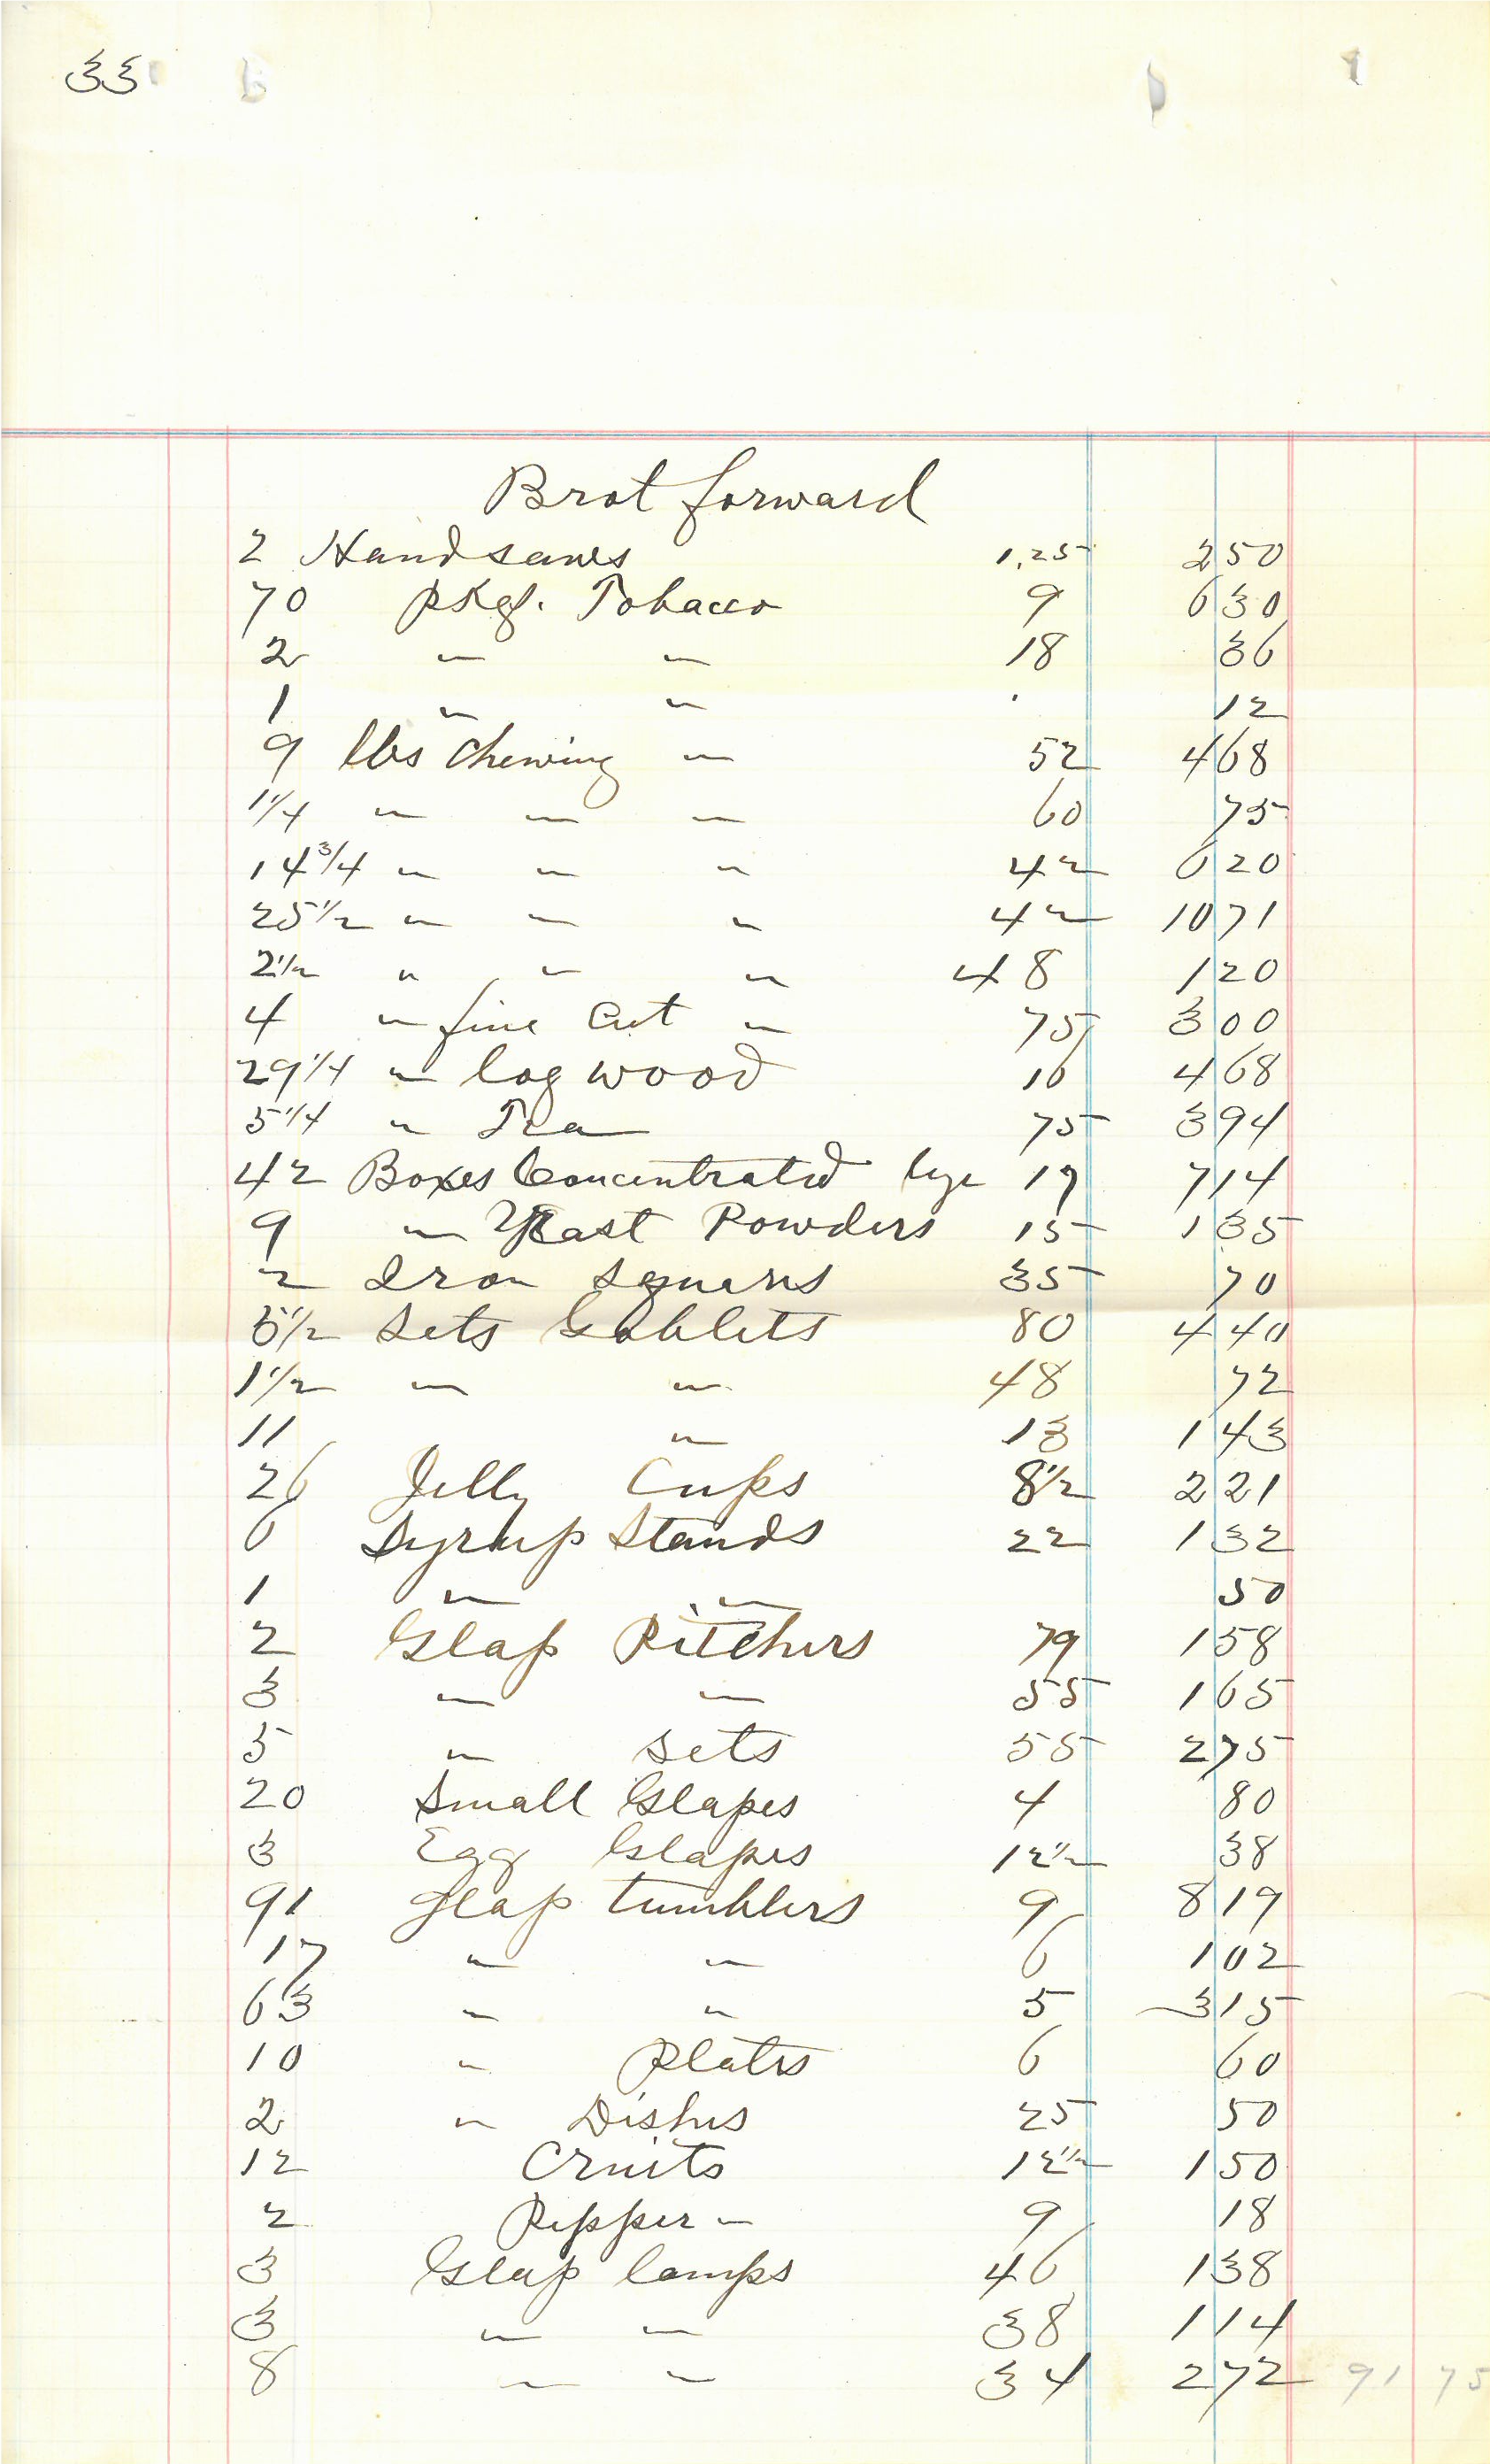 33
Brot forward
2 Handsaws 1.25 2 50
70 pkgs. Tobacco 9 6 30
2 " " 18 36
1 " " 12
9 lbs Chewing " 52 4 68
1 1/4 " " " 60 75
14 3/4 " " " 42 6 20
25 1/2 " " " 42 10 71
2 1/2 " " " 48 1 20
4 " fine Cut " 75 3 00
29 1/4 " log wood 16 4 68
5 1/4 " Tea 75 3 94
42 Boxes Concentrated lye 17 7 14
9 " Yeast Powders 15 1 35
2 Iron Squares 35 70
5 1/2 Sets Goblets 80 4 40
1 1/2 " " 48 72
11 " 13 1 43
26 Jelly Cups 8 1/2 2 21
6 Syrup Stands 22 1 32
1 " " 50
2 Glass Pitchers 79 1 58
3 " " 55 1 65
5 " Sets 55 2 75
20 Small Glasses 4 80
3 Egg Glasses 12 1/2 38
91 glass tumblers 9 8 19
17 " " 6 1 02
63 " " 5 3 15
10 " Plates 6 60
2 " Dishes 25 50
12 Cruits 12 1/2 1 50
2 Pepper " 9 18
3 Glass lamps 46 1 38
3 " " 38 1 14
8 " " 34 2 72 91 75